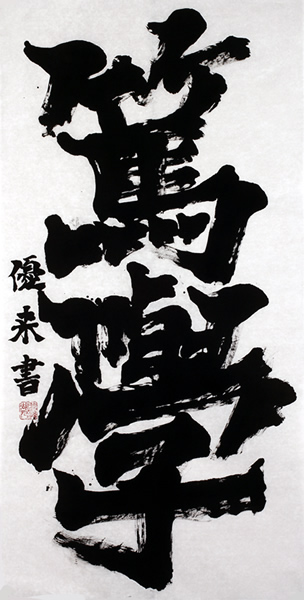 篤學
優来書